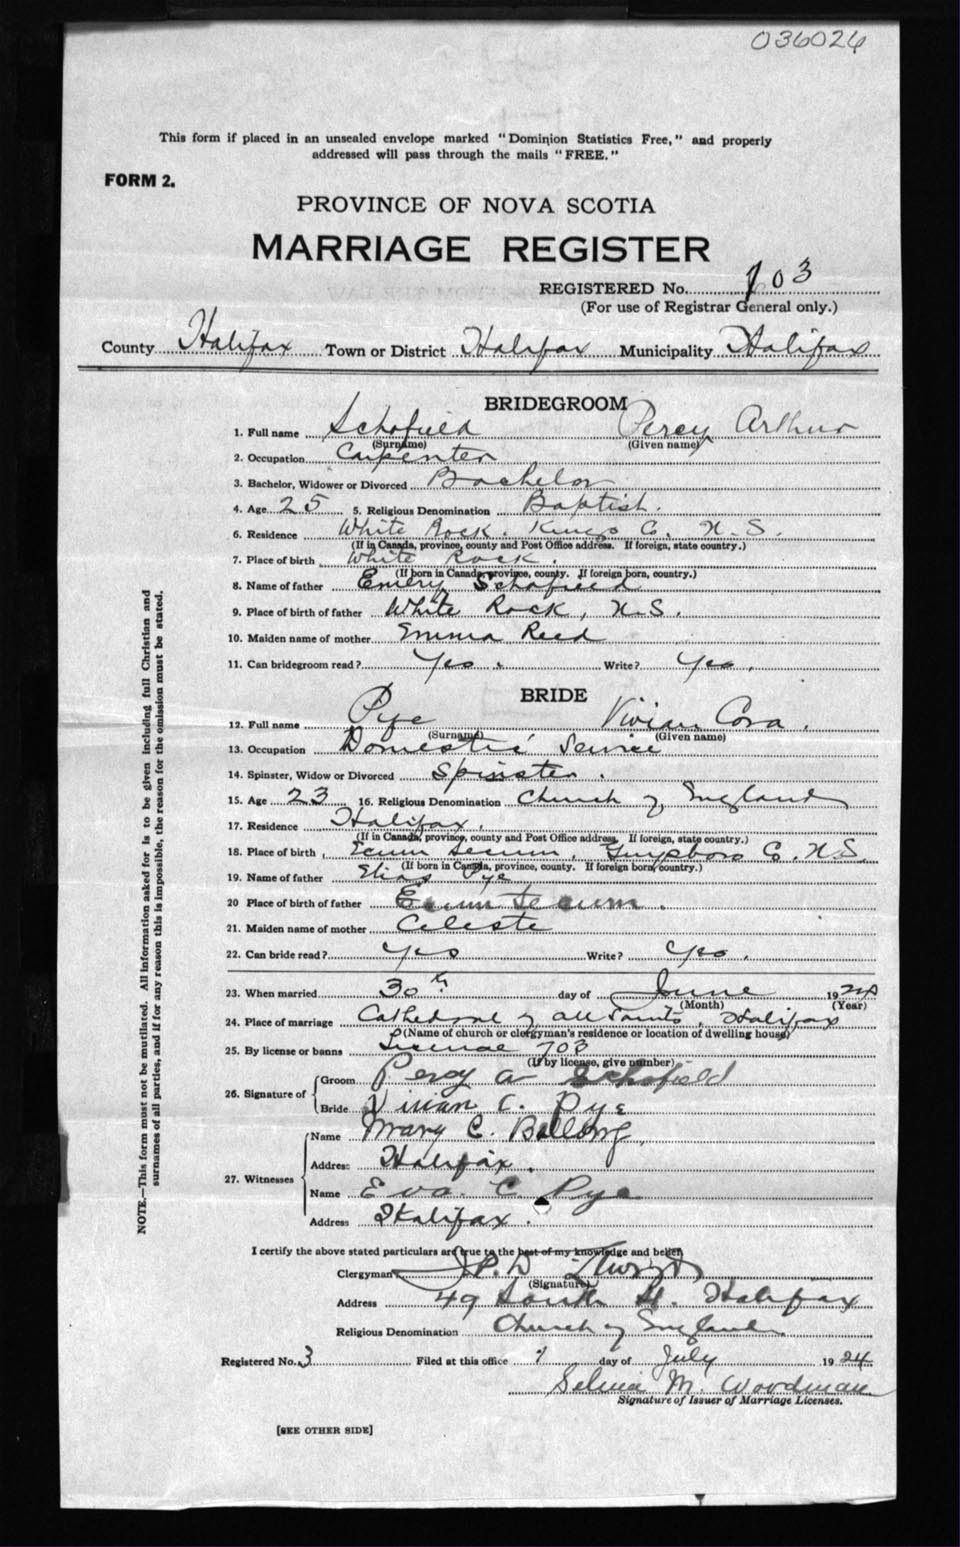 036026
This form if placed in an unsealed envelope marked "Dominion Statistics Free," and properly
addressed will pass through the mails "FREE."
FORM 2.
PROVINCE OF NOVA SCOTIA
MARRIAGE REGISTER
REGISTERED No. 703
(For use of Registrar General only.)
County Halifax Town or District Halifax Municipality Halifax
BRIDEGROOM
1. Full name Schofield Percy Arthur
(Surname) (Given name)
2. Occupation Carpenter
3. Bachelor, Widower or Divorced Bachelor
4. Age 25 5. Religious Denomination Baptist.
6. Residence White Rock. Kings Co. N.S.
(If in Canada, province, county and Post Office address. If foreign, state country.)
7. Place of birth White Rock.
(If born in Canada, province, county. If foreign born, country.)
8. Name of father Emery Schofield
9. Place of birth of father White Rock, N.S.
10. Maiden name of mother Emma Reed
11. Can bridegroom read? Yes. Write? Yes.
BRIDE
12. Full name Pye Vivian Cora.
(Surname) (Given name)
13. Occupation Domestic Service
14. Spinster, Widow or Divorced Spinster.
15. Age 23 16. Religious Denomination Church of England
17. Residence Halifax.
(If in Canada, province, county and Post Office address. If foreign, state country.)
18. Place of birth Ecum Secum, Guysboro Co. N.S.
(If born in Canada, province, county. If foreign born, country.)
19. Name of father Elias Pye
20 Place of birth of father Ecum Secum.
21. Maiden name of mother Celeste
22. Can bride read? Yes Write? Yes.
23. When married 30th day of June 1924
(Month) (Year)
24. Place of marriage Cathedral of All Saints, Halifax
(Name of church or clergyman's residence or location of dwelling house)
25. By license or banns License 703
(If by license, give number)
26. Signature of Groom Percy A Schofield
Bride Vivian C. Pye
27. Witnesses Name Mary C.
Address Halifax.
Name Eva. C. Pye
Address Halifax.
I certify the above stated particulars are true to the best of my knowledge and belief,
Clergyman
(Signature)
Address 49 South St. Halifax
Religious Denomination Church of England
Registered No. 3 Filed at this office 1 day of July 1924
Selina M. Woodman
Signature of Issuer of Marriage Licenses.
[SEE OTHER SIDE]
NOTE.—This form must not be mutilated. All information asked for is to be given including full Christian and
surnames of all parties, and if for any reason this is impossible, the reason for the omission must be stated.